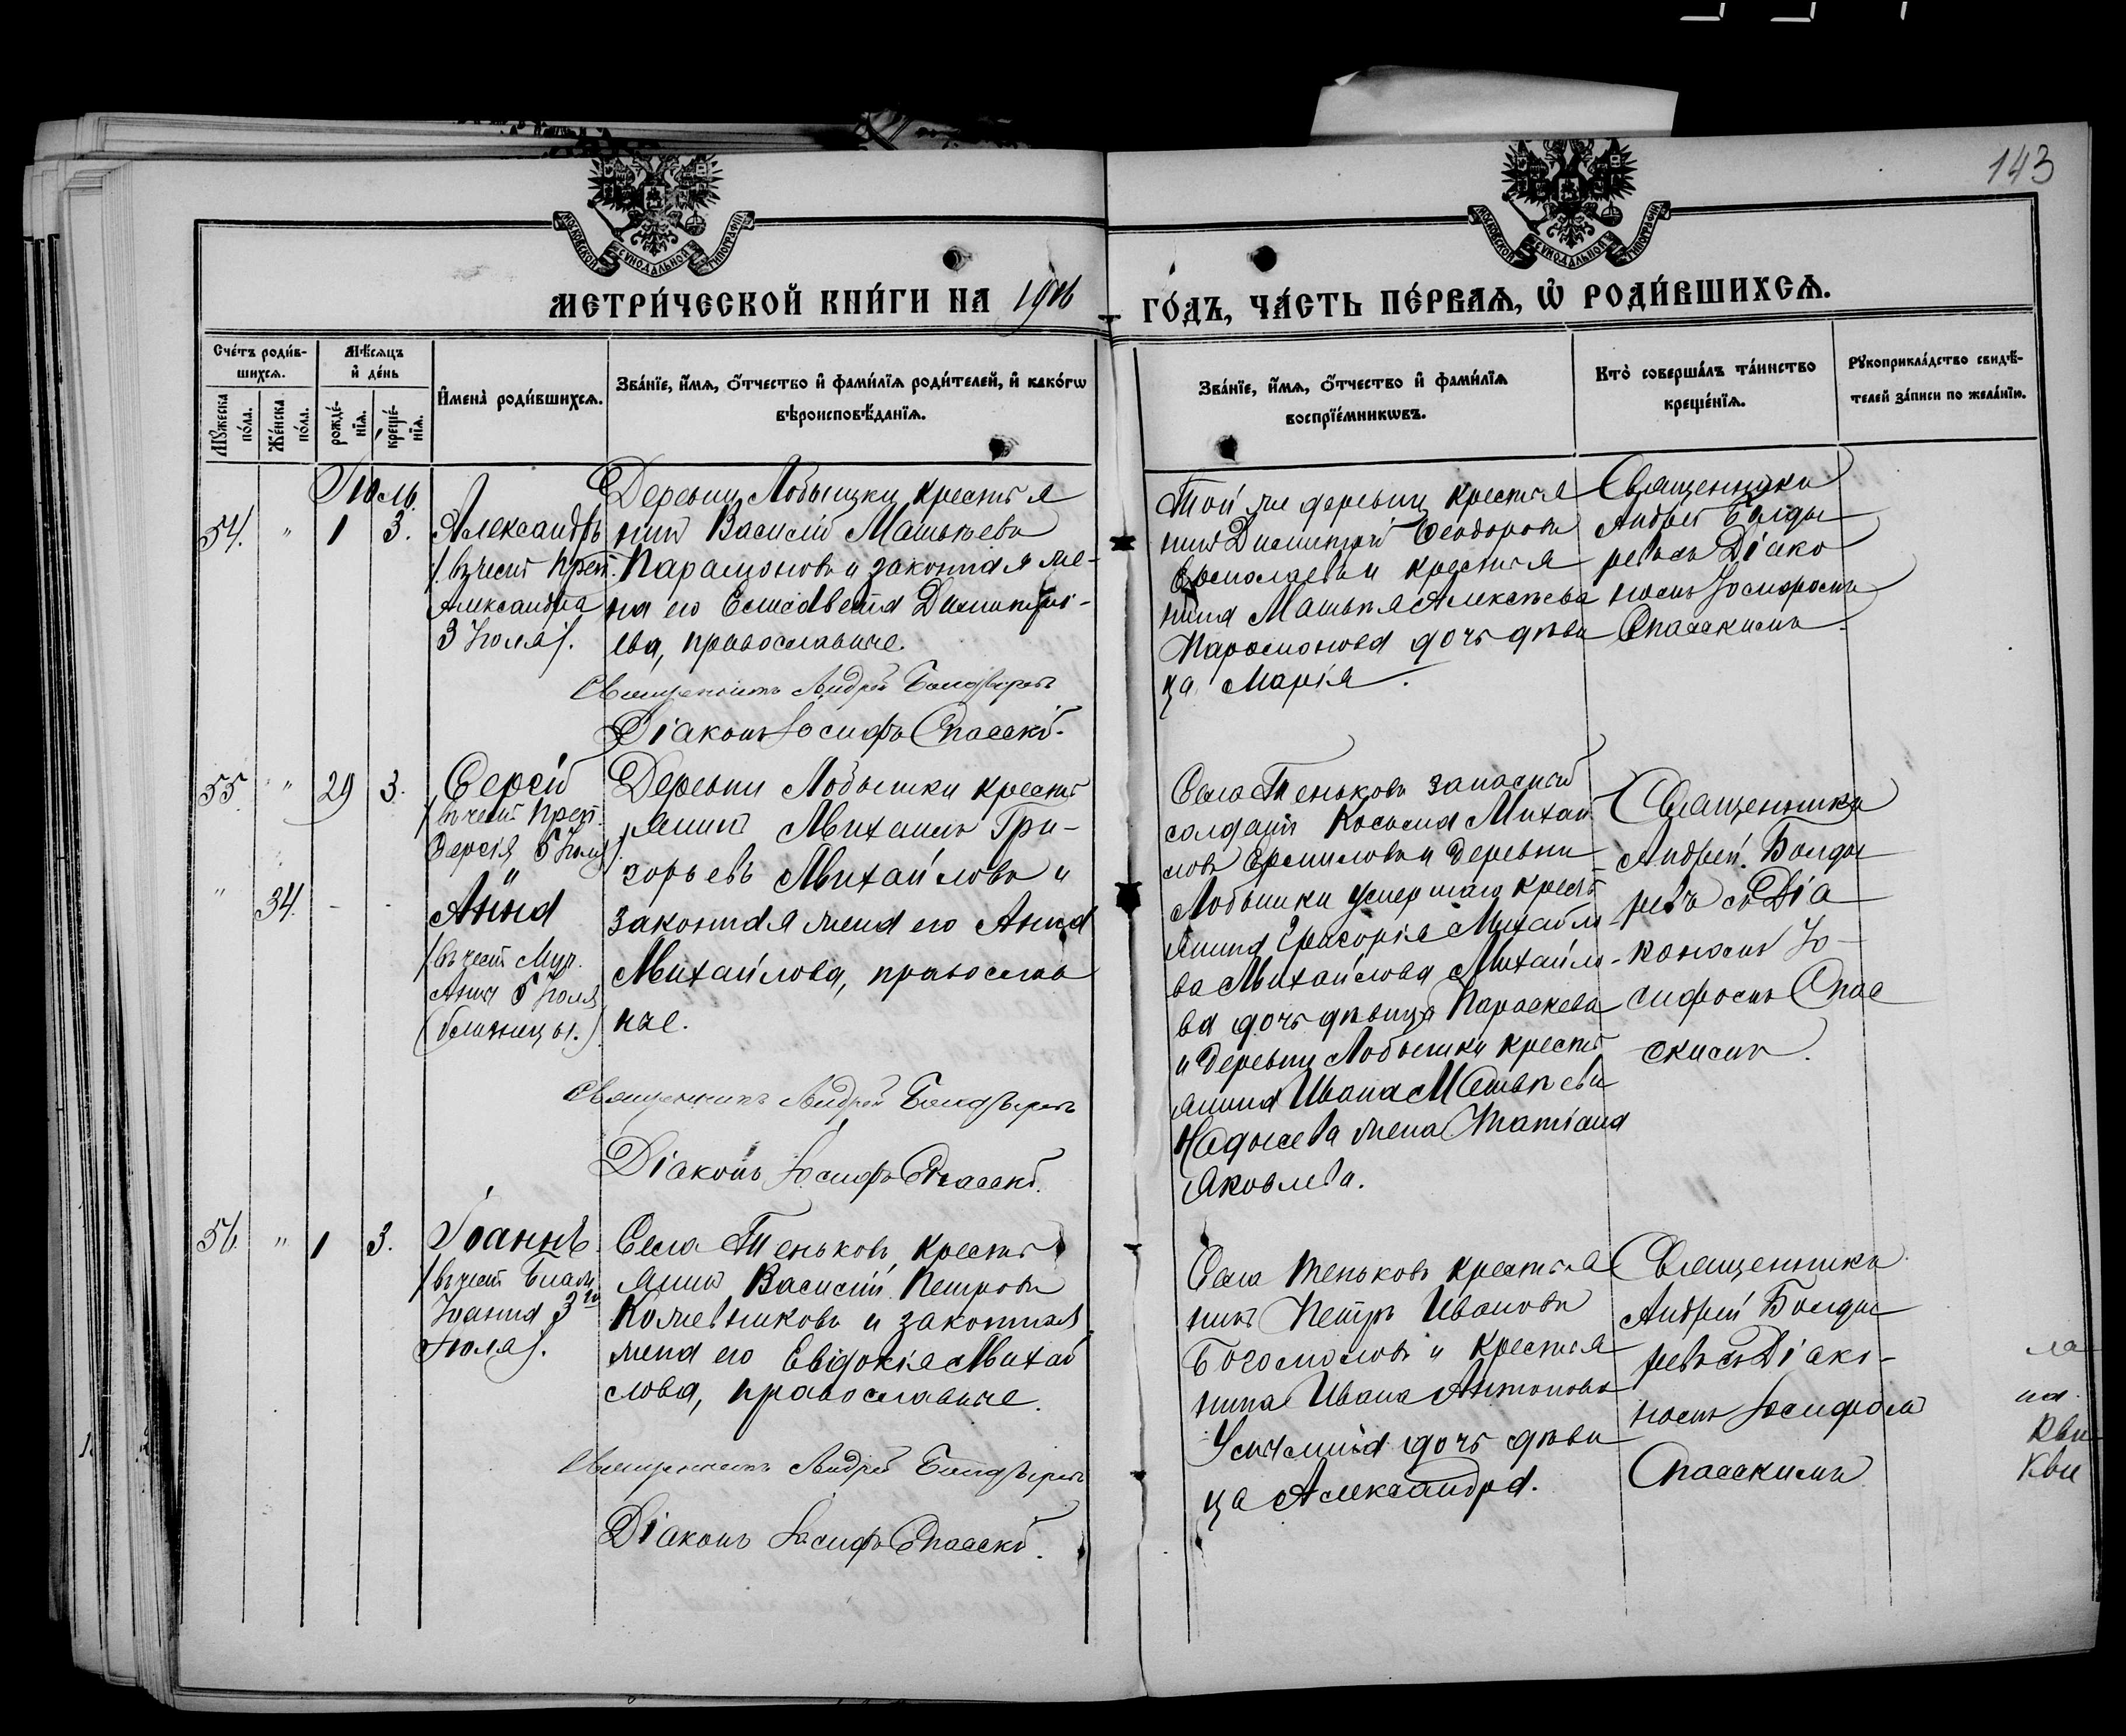 143
МОСКОВСКОЙ СѴНОДАЛЬНОЙ ТИПОГРАФІИ
МОСКОВСКОЙ СѴНОДАЛЬНОЙ ТИПОГРАФІИ
МЕТРИ́ЧЕСКОЙ КНИ́ГИ НА 1906 ГО́ДЪ, ЧА́СТЬ ПЕ́РВАѦ, Ѡ҆ РОДИ́ВШИХСѦ.
Сче́тъ роди́в-
шихсѧ.
Мѣ́сѧцъ
и҆ де́нь
Мꙋ́жеска
по́ла.
Же́нска
по́ла.
рожде́-
нїѧ.
креще́-
нїѧ.
И҆мена̀ роди́вшихсѧ.
Зва́нїе, и҆́мѧ, ѻ҆́тчество и҆ фами́лїѧ роди́телей, и҆ како́гѡ
вѣроисповѣ́данїѧ.
Зва́нїе, и҆́мѧ, ѻ҆́тчество и҆ фами́лїѧ
воспрїе́мникѡвъ.
Кто̀ соверша́лъ та́инство
креще́нїѧ.
Рꙋкоприкла́дство свидѣ́-
телей за́писи по жела́нїю.
Іюль.
54. " 1 3.
Александръ
/въ честь Преп.
Александра
3 Іюля/.
Деревни Лобышки крестья
нинъ Василій Матвѣевъ
Парамоновъ и законная же-
на его Елисавета Димитрі-
ева, православные.
Священникъ Андрей Болдыревъ
Діаконъ Іосифъ Спасскій.
Той же деревни крестья
нинъ Димитрій Ѳеодоровъ
Ермолаевъ и крестья
нина Матвѣя Алексѣева
Парамонова дочь дѣви
ца Марія.
Священникъ
Андрей Болды
ревъ съ Діако
номъ Іосифомъ
Спасскимъ.
55 " 29 3.
Сергій
/въ честь Преп.
Сергія 5 Іюля/
" 34. - -
Анна
/въ честь Муч.
Анны 5 Іюля
(близнецы.)
Деревни Лобышки кресть
янинъ Михаилъ Гри-
горьевъ Михайловъ и
законная жена его Анна
Михайлова, православ
ные.
Священникъ Андрей Болдыревъ
Діаконъ Іосифъ Спасскій.
Села Теньковъ запасный
солдатъ Косьма Михай
ловъ Ермиловъ и деревни
Лобышки умершаго кресть
янина Григорія Михайло
ва Михайлова Михайло-
ва дочь дѣвица Параскева
и деревни Лобышки кресть
янина Ивана Матвѣева
жена Татіана
Яковлева.
Священникъ
Андрей Болды
ревъ съ Діа
кономъ Іо-
сифомъ Спас
скимъ.
56. " 1 3.
Іоаннъ
/въ честь Блаж.
Іоанна 3го
Іюля/.
Села Теньковъ кресть
янинъ Василій Петровъ
Кожевниковъ и законная
жена его Евдокія Михай
лова, православные.
Священникъ Андрей Болдыревъ
Діаконъ Іосифъ Спасскій.
Села Теньковъ крестья
нинъ Петръ Ивановъ
Богомоловъ и крестья
нина Ивана Антонова
дочь дѣви
ца Александра.
Священникъ
Андрей Болды
ревъ съ Діако-
номъ Іосифомъ
Спасскимъ